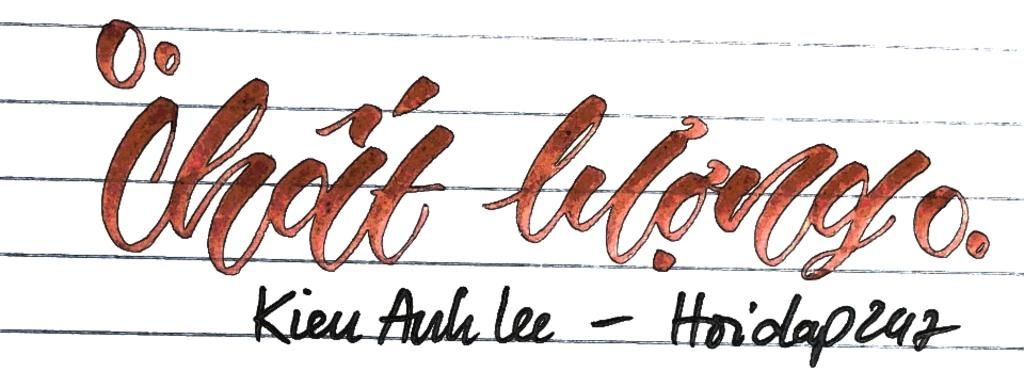 Chất lượng
Kieu Anh Lee - Hoidap247